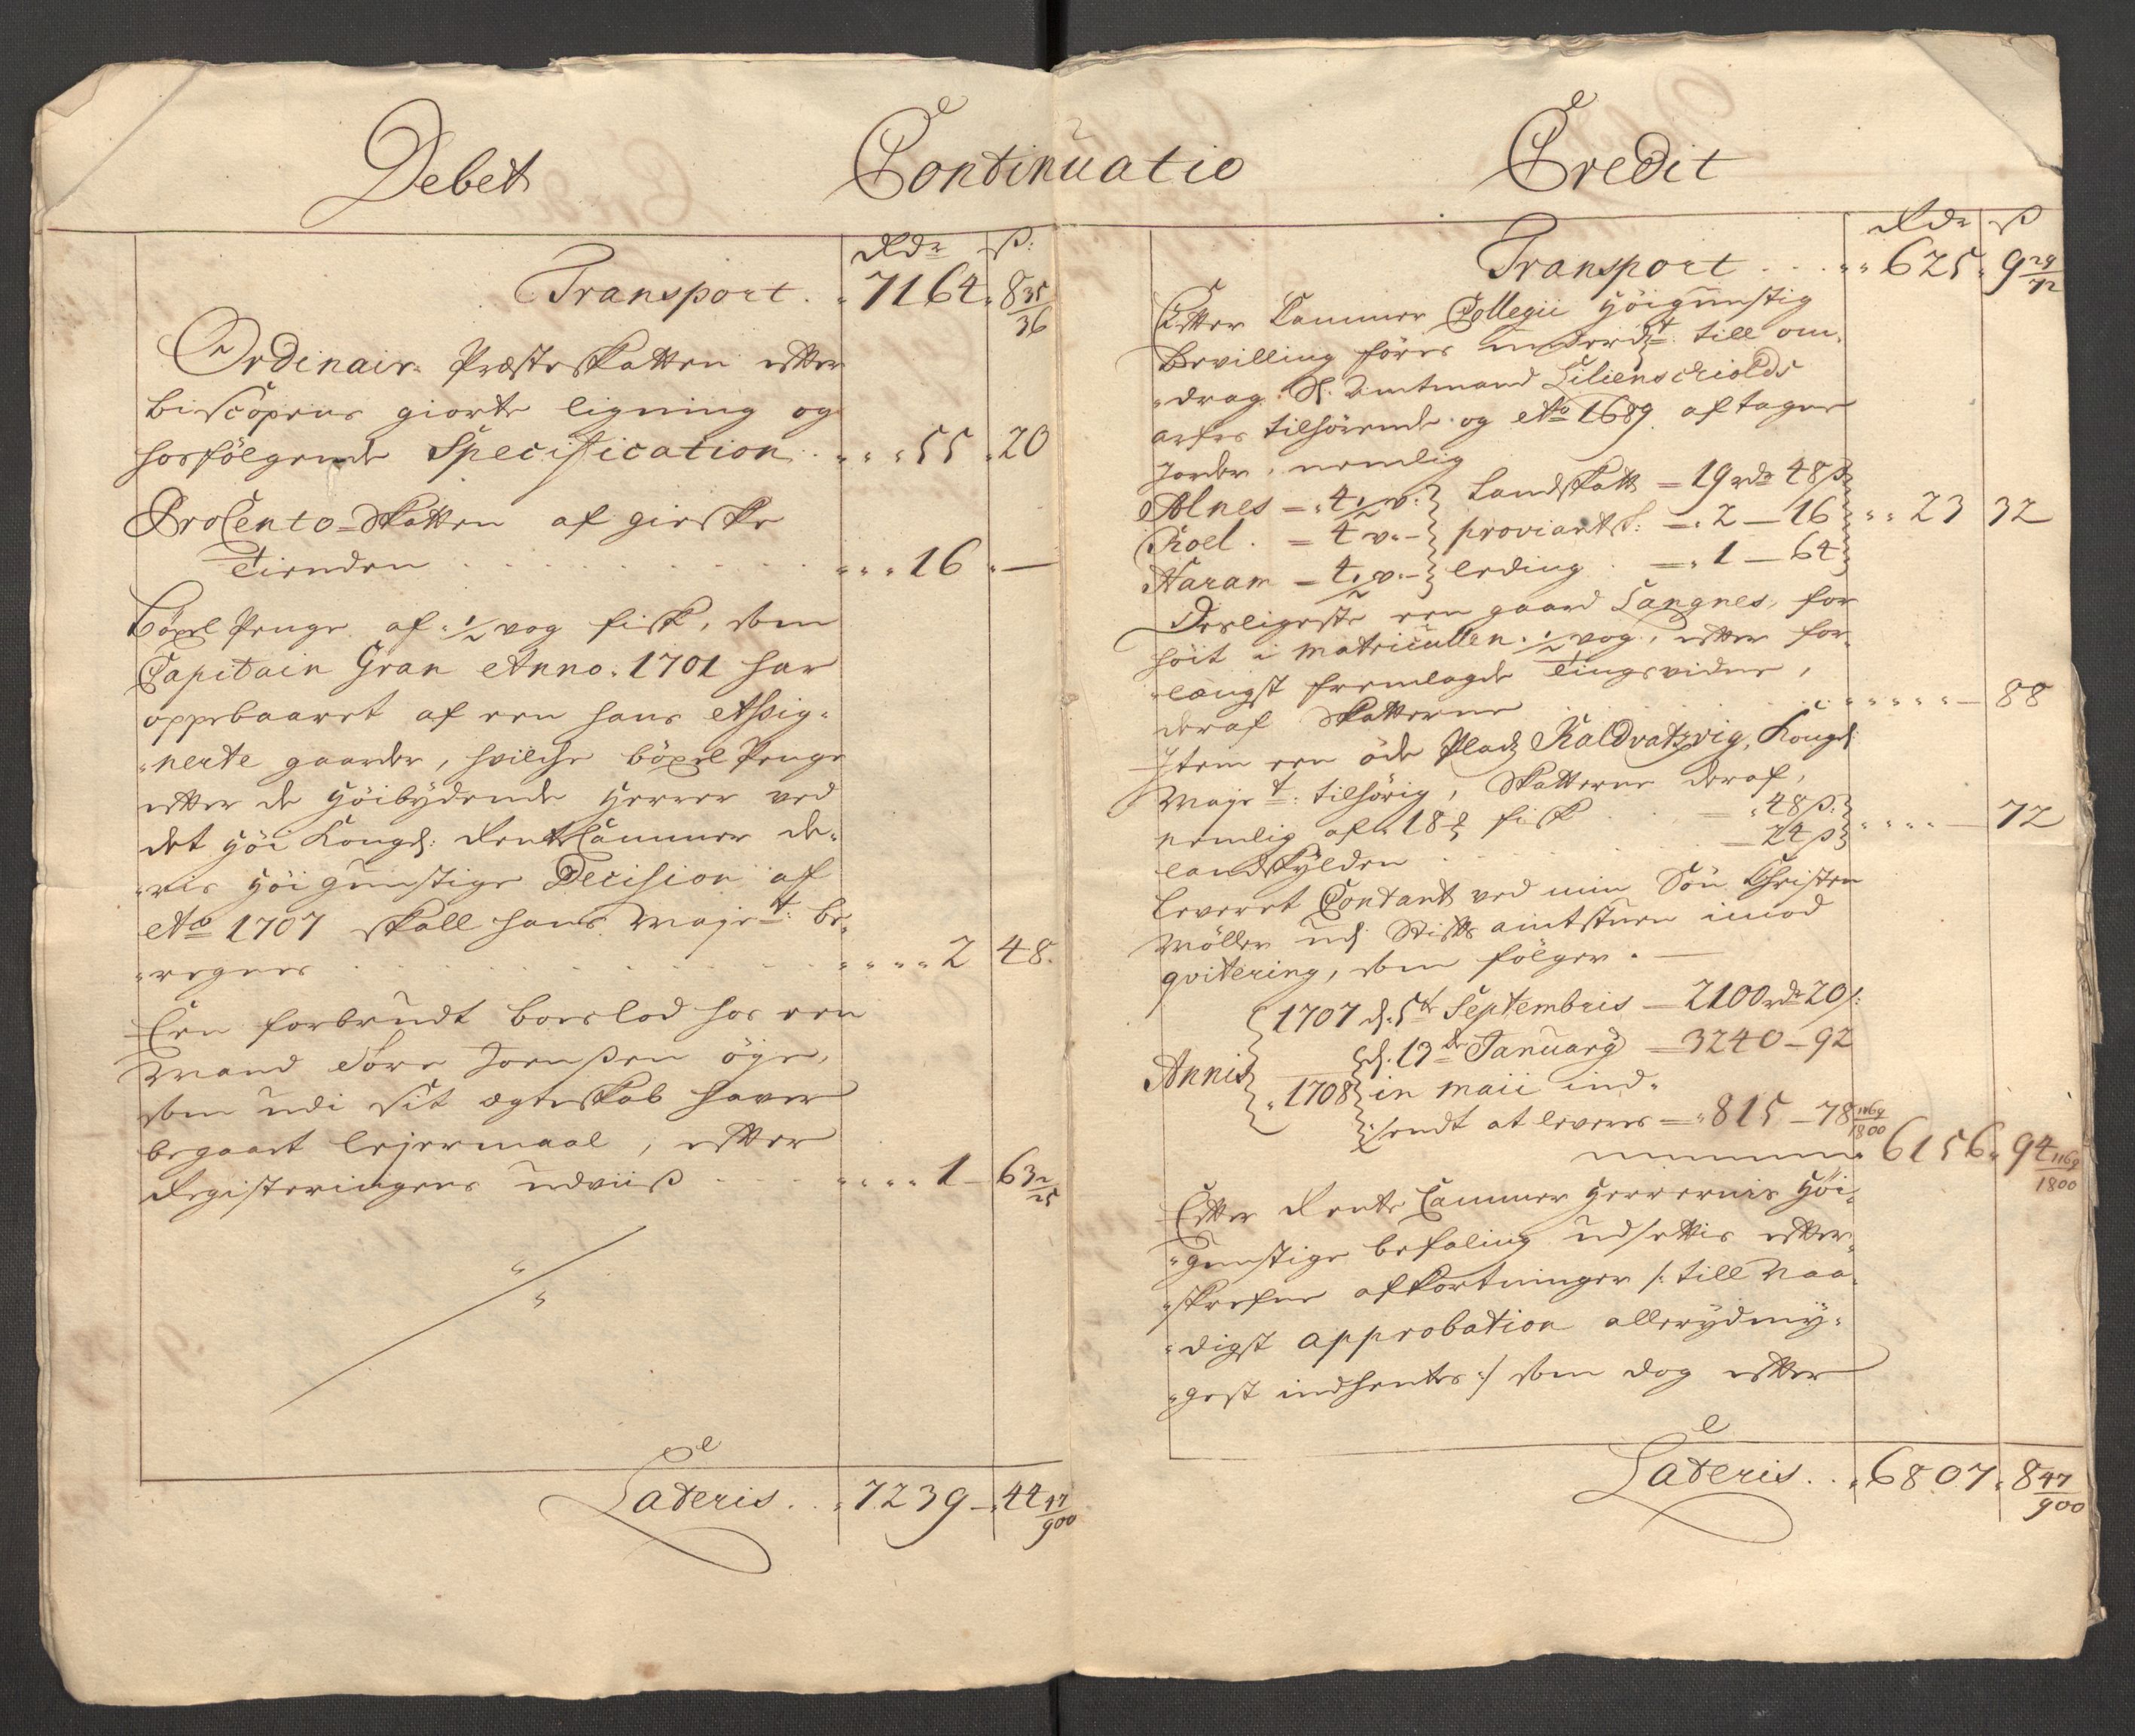 Debet Continuatio Credit
Rdr ß:
Transport . 7164. 8 35/36
Ordinair: Præsteskatten efter
biscopens giorte ligning og
hosfölgende Specification . . . . 55. 20
ProCento-Skatten af gieske
Tienden . . . . . . . . 16. —
böxel Penge af. 1/2 vog fisk, som
Capitain Gran Anno. 1701 har
oppebaaret af een hans Assig-
nerte gaarder, hvilche böxel Penge
efter de höibydende Herrer ved
det höi Kongl: RentteCammer de-
ris höigunstige Decision af
Ao 1707 skall hans Majet: be-
regnes . . . . . . . . 2 48.
Een forbrudt boeslod hos een
Mand Tore Joensen öye,
som udi sit ægteskab haver
begaaet lejermaal, efter
Registeringens udviis . . . . 1 - 63 2/25
Lateris . . 7239 - 44 47/900
Rdr ß
Transport . . . 625. 9 29/72
Efter Cammer Collegii höigunstig
bevilling föres underdt: till om-
drag Sl. Amtmand Lilienschiolds
arfes tilhörende og Ao 1689 aftagne
Jorder, nemlig
Alnes = 4 1/2 v: Landskatt = 19 rdr 48 ß
Roel . = 4 v. - proviantsk: = 2 — 16 . . 23 32
Haram = 4 1/2 v. - leding . = 1 — 64
Desligeste een gaard Langnes, for
höit i Matricullen. 1/2 vog, efter for
længst fremlagde Tingsvidne,
deraf Skatterne . . . . . . . — 88
Item een öde Plads Kaldvatzvig, Kongl:
Majet: tilhörig, Skatterne deraf,
nemlig af 18 # fisk . . . = 48 ß:
landskylden . . . . . — 24 ß . . . . — 72
leveret Contant ved min Sön Christen
Möller udj Stiftsamtstuen imod
qvitering, som fölger. —
1707 d: 5te Septembris — 2100 rdr 20 ß:
Annis d. 19de January — 3240 — 92
1708 in Maii ind-
sendt at levere = 815 — 78 1169/1800
6156. 94 1169/1800
Efter RenteCammer Herrernis höi-
gunstige befaling udsettis efter-
skrefne afkortninger /: till Naa-
digst approbation allerydmy-
gest indhentes :/ som dog efter
Lateris. . 6807. 8 47/900